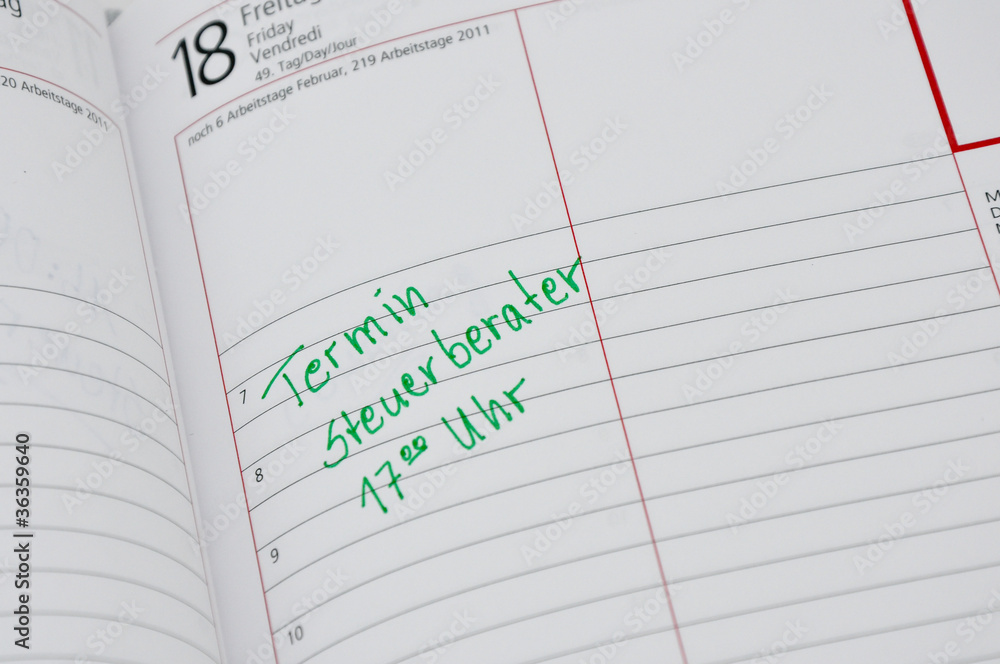 18
Freitag
Friday
Vendredi
49. Tag/Day/Jour
noch 6 Arbeitstage Februar, 219 Arbeitstage 2011
20 Arbeitstage 2011
7
8
9
10
Termin
Steuerberater
17 00 Uhr
Adobe Stock | #36359640